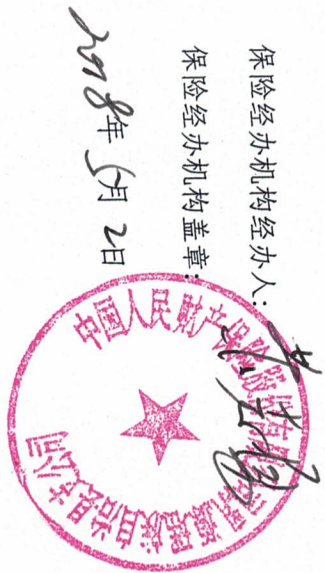 保险经办机构经办人：
保险经办机构盖章：
2018年5月2日
中国人民财产保险股份有限公司
自治县支公司